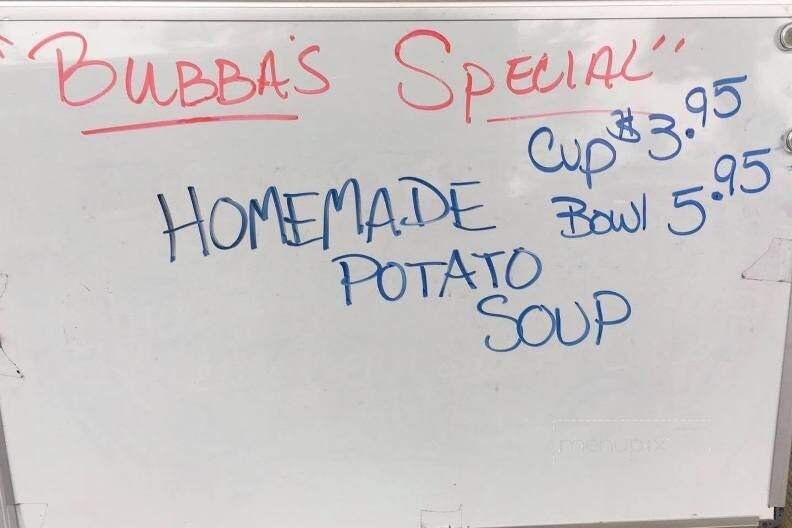 "BUBBA'S SPECIAL"
CUP $3.95
BOWl 5.95
HOMEMADE
POTATO
SOUP
menupix